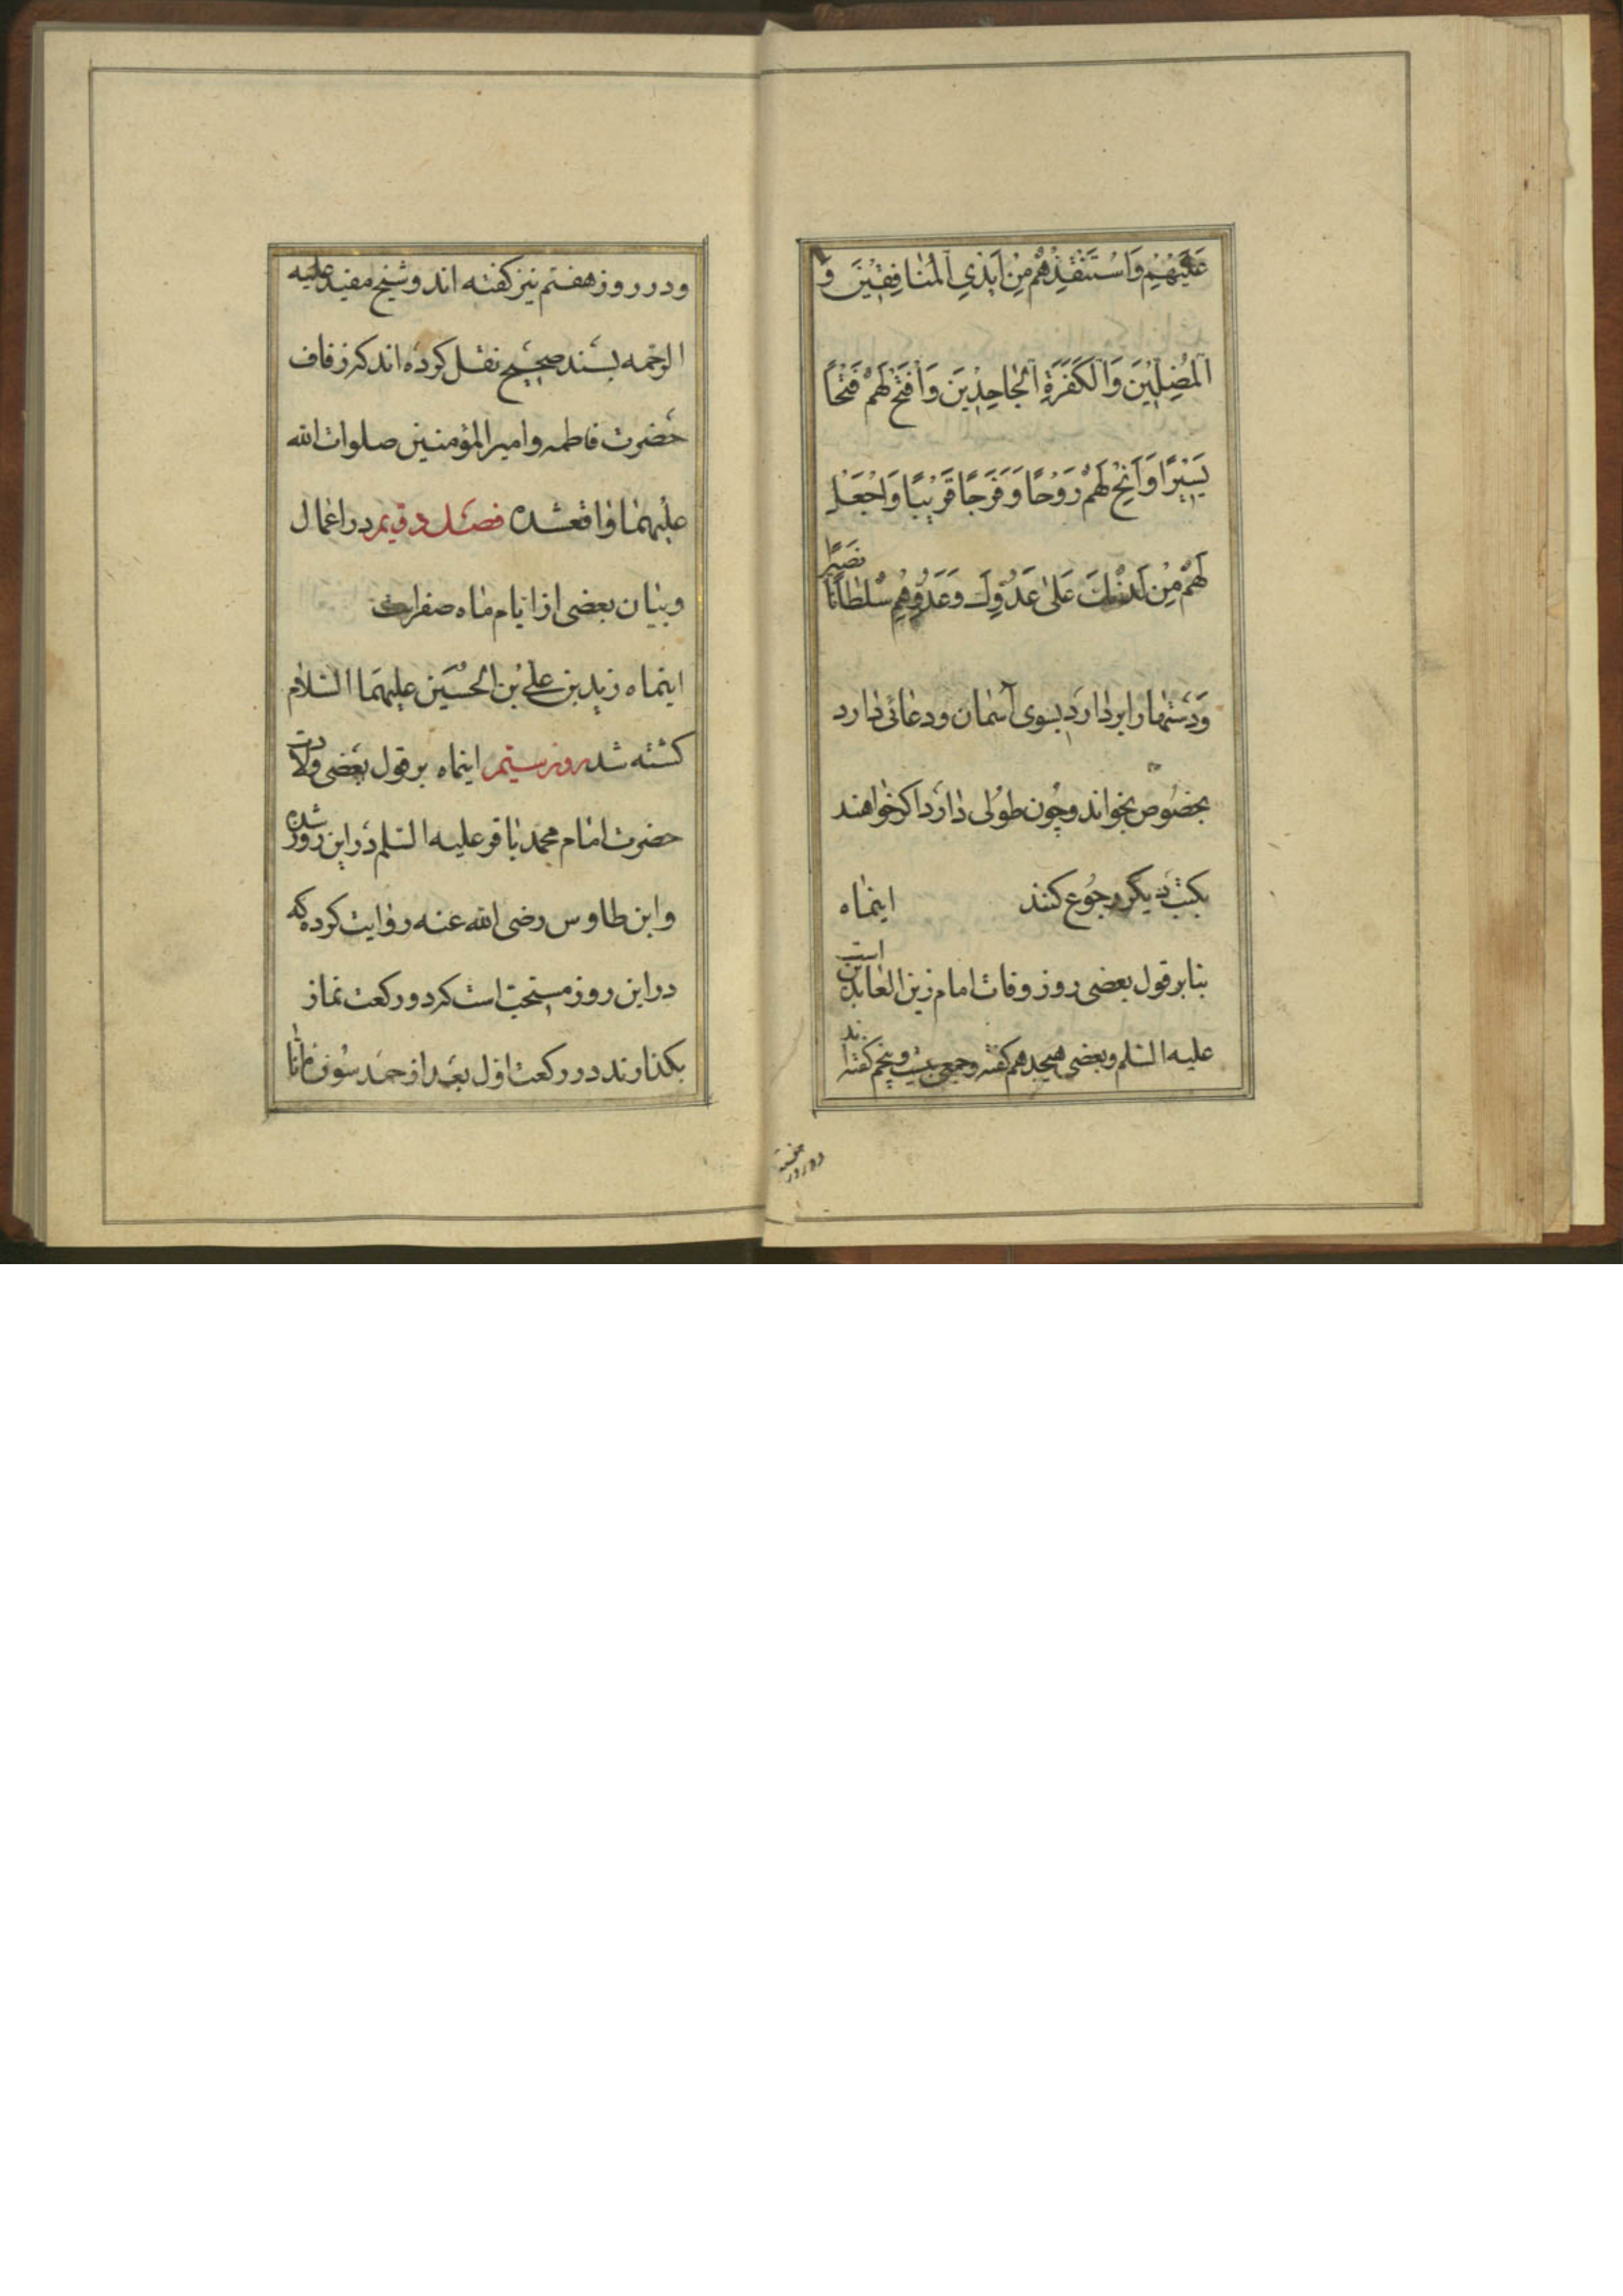 عَلَيْهِمْ وَاسْتَنْقِذْهُمْ مِنْ اَيْدِي الْمُنَافِقِيْنَ وَ
الْمُضِلِّيْنَ وَالْكَفَرَةِ الْجَاحِدِيْنَ وَافْتَحْ لَهُمْ فَتْحًا
يَسِيْرًا وَاَتِحْ لَهُمْ رَوْحًا وَفَرَجًا قَرِيْبًا وَاجْعَلْ
لَهُمْ مِنْ لَدُنْكَ عَلىٰ عَدُوِّكَ وَعَدُوِّهِمْ سُلْطَانًا نَصِيْرًا
وَدستهارا بردارد بسوی آسمان ودعائی دارد
بخصوص بخواند وچون طولی دارد اکر خواهند
بکتب دیکر رجوع کنند اینماه
بنابر قول بعضی روز وفات امام زین العابدین است
علیه السلم وبعضی هیجدهم کفته وجمعی بیست وپنجم کفته اند
ودر روز هفتم
ودر روز هفتم نیز کفته اند وشیخ مفید علیه
الرحمه بسند صحیح نقل کرده اند که زفاف
حضرت فاطمه وامیر المؤمنین صلوات الله
علیهما واقعشده فصل دویم در اعمال
وبیان بعضی از ایام ماه صفر است
اینماه زید بن علی بن الحسین علیهما السلام
کشته شد روز سیم اینماه بر قول بعضی ولادت
حضرت امام محمد باقر علیه السلم در این روز شده
وابن طاوس رضی الله عنه روایت کرده که
در این روز مستحبّ است که دو رکعت نماز
بکذارند در رکعت اول بعد از حمد سوره انا